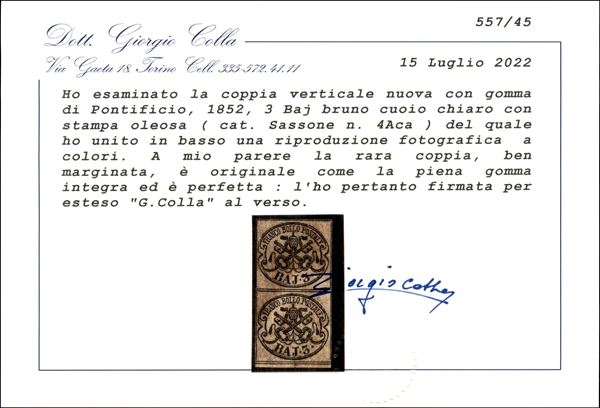 557/45
Dott. Giorgio Colla
Via Gaeta 18 Torino Cell. 335-572.41.11
15 Luglio 2022
Ho esaminato la coppia verticale nuova con gomma
di Pontificio, 1852, 3 Baj bruno cuoio chiaro con
stampa oleosa ( cat. Sassone n. 4Aca ) del quale
ho unito in basso una riproduzione fotografica a
colori. A mio parere la rara coppia, ben
marginata, è originale come la piena gomma
integra ed è perfetta : l'ho pertanto firmata per
esteso "G.Colla" al verso.
FRANCO BOLLO POSTALE
BAJ.3.
Giorgio Colla
FRANCO BOLLO POSTALE
BAJ.3.